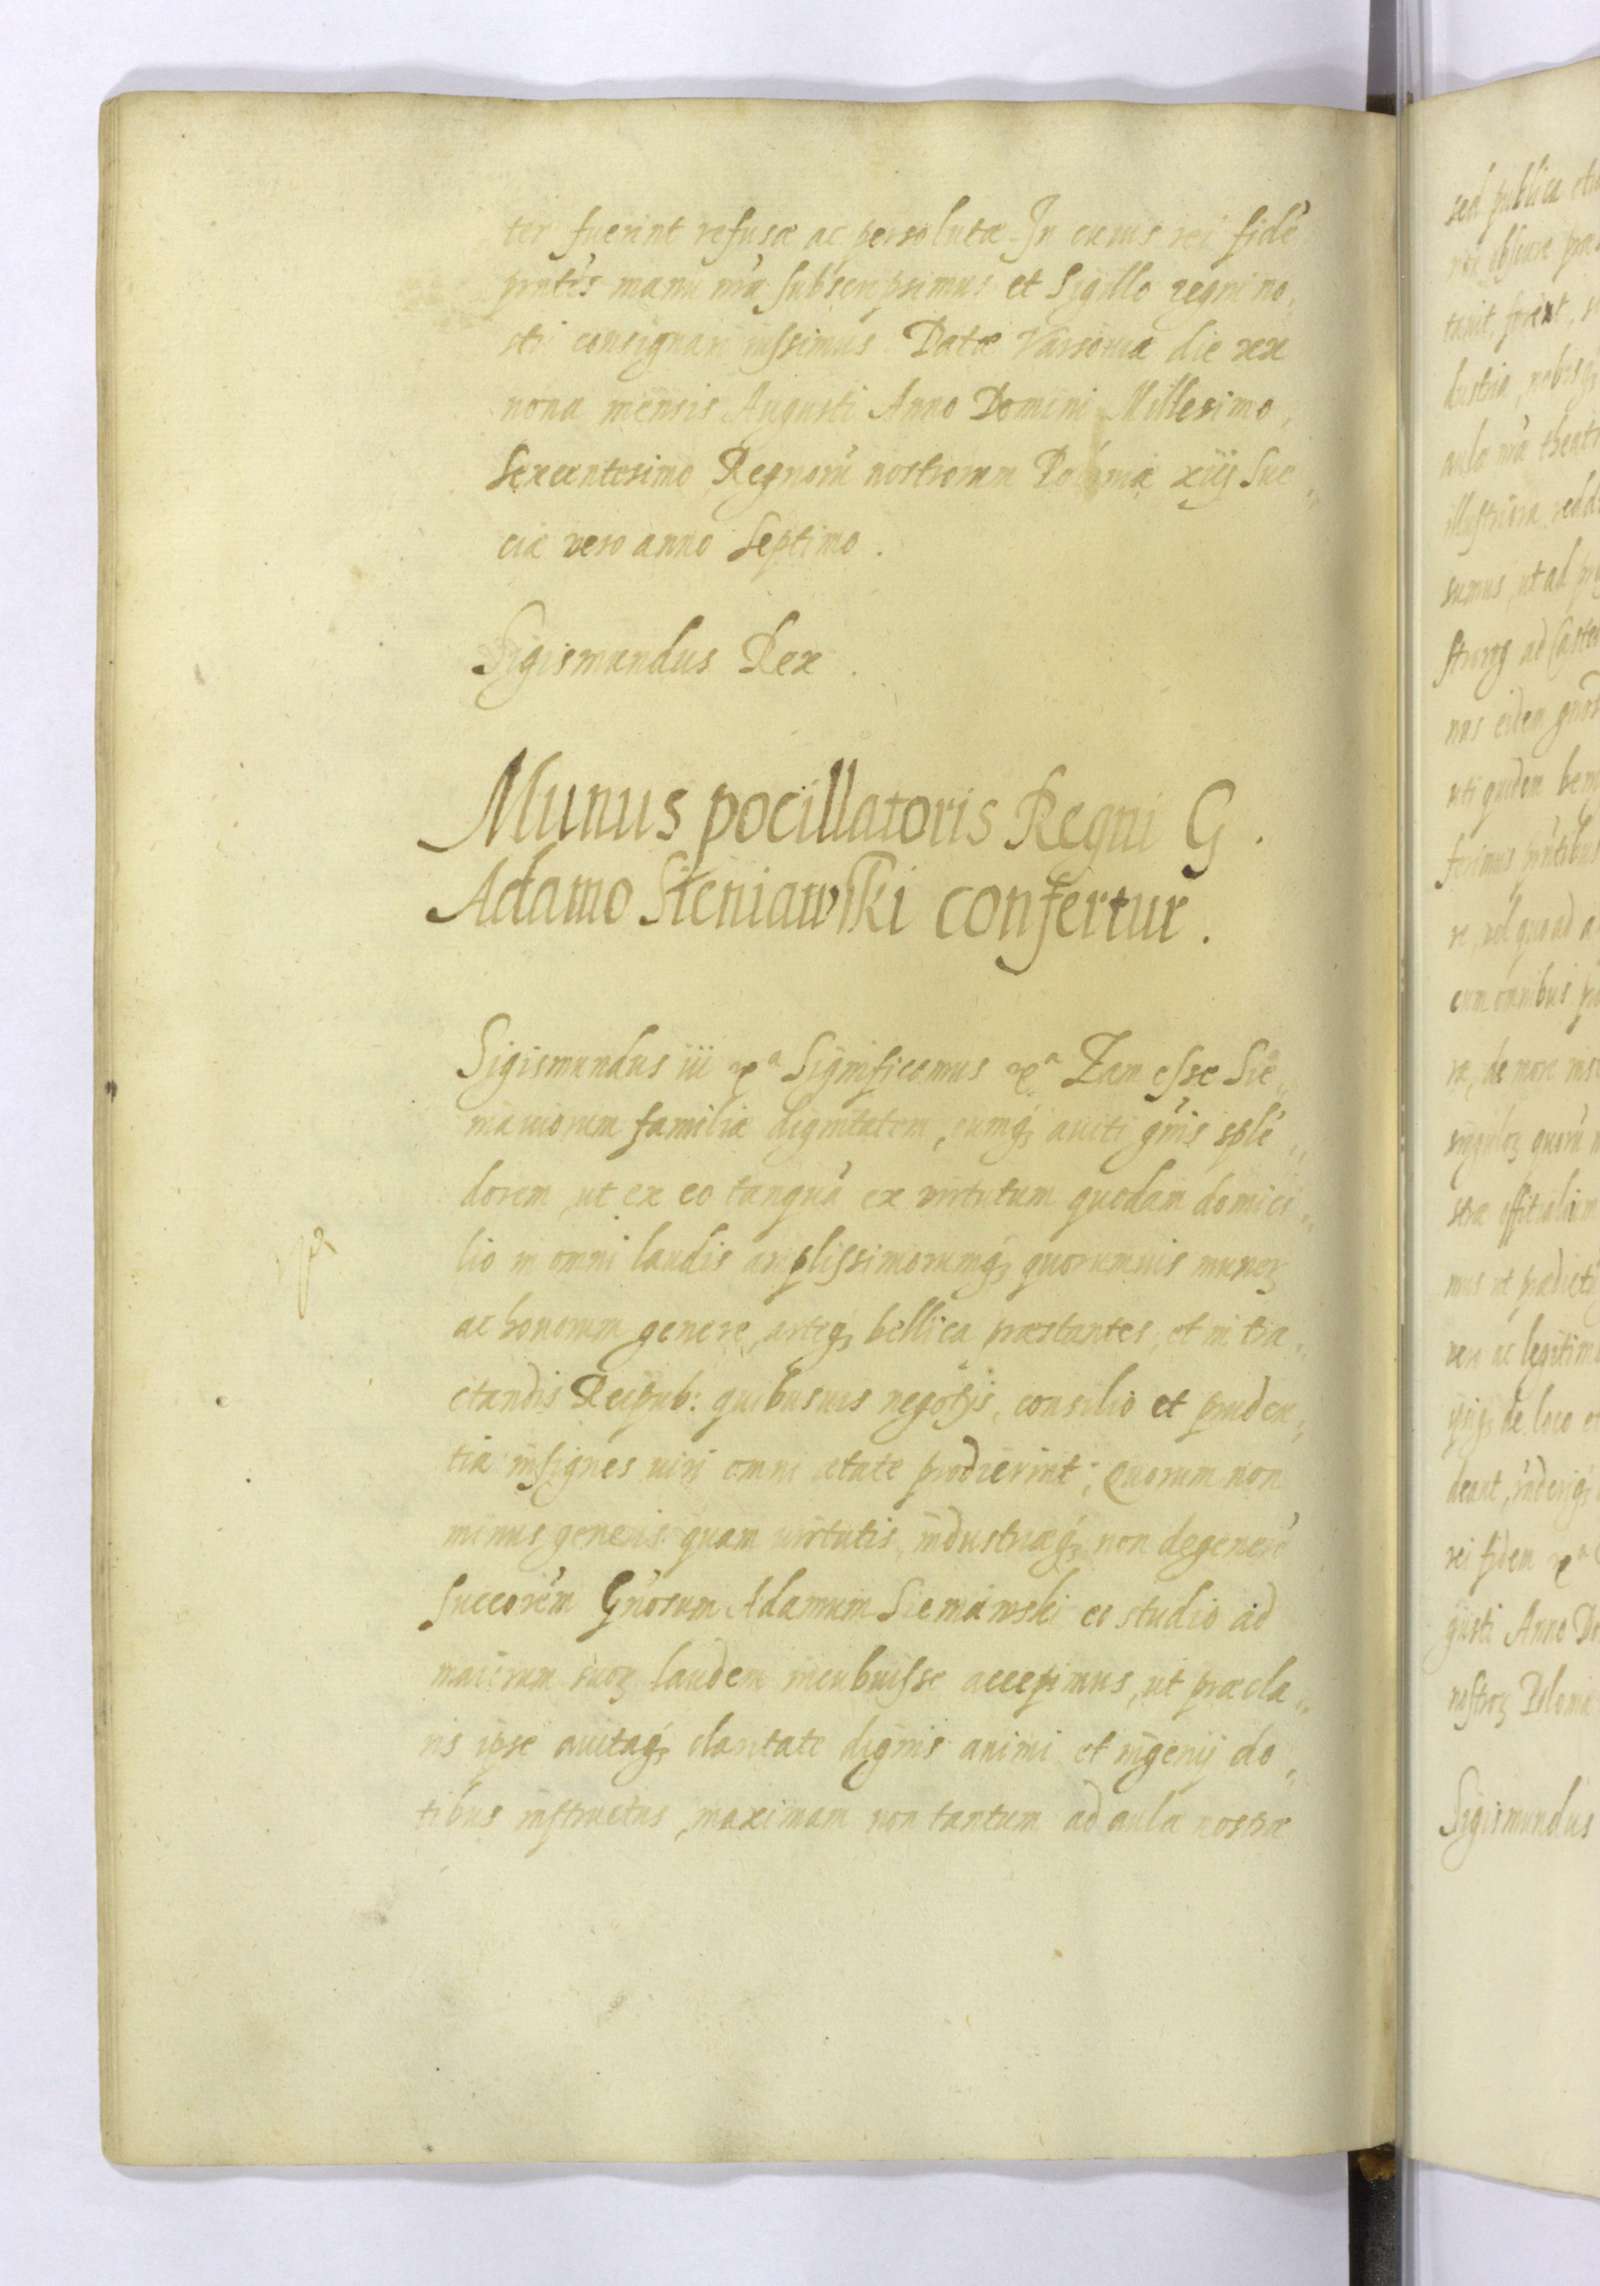 ter fuerint refusæ ac persolutæ. In cuius rei fidē
pn̄tes manu nr̄a subscripsimus et Sigillo regni no„
stri consignari iussimus. Datæ Varsoviæ die xx
nona mensis Augusti Anno Domini Millesimo
Sexcentesimo Regnorū nostrorum Poloniæ xiij Sue„
ciæ vero anno Septimo.
Sigismundus Rex.
Munus pocillatoris Regni G.
Adamo Sieniawski confertur.
Sigismundus iii &ᵃ Significamus &ᵃ Eam esse Sie„
niaviorum familiæ dignitatem, eumq́ aviti gn̄is splē„
dorem, ut ex eo tanquā ex virtutum quodam domici„
lio in omni laudis amplissimorumq́ quorumvis munerꝝ
ac honorum genere, arteq́ bellica præstantes, et in tra„
ctandis Reipub: quibusvis negotijs, consilio et pruden„
tia insignes viri omni ætate prodierint; Quorum non
minus generis quam virtutis, industriæq́ non degenerē
succorēm Gn̄osum Adamum Sieniawski eo studio ad
maiorum suoꝝ laudem incubuisse accepimus, ut præcla„
ris ipse avitaq́ claritate dignis animi et ingenij do„
tibus instructus, maximam non tantum ad aulæ nostræ
sed publica
non obscure
tavit,
bustria, nobisq́
aula nr̄a
illustriora
sumus, ut ad
ad
nos eidem
uti quidem
pn̄tibus
re, vel quoad
cum omnibus
re, de more
singuloꝝ quorū
stræ officialium
mus ut prædictū
vero ac legitimo
ipsiq́ de loco
deant,
rei fidem &ᵃ
gusti Anno
nostroꝝ Poloniæ
Sigismundus